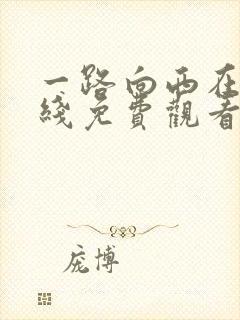 一路向西在
綫免費觀看
庞博